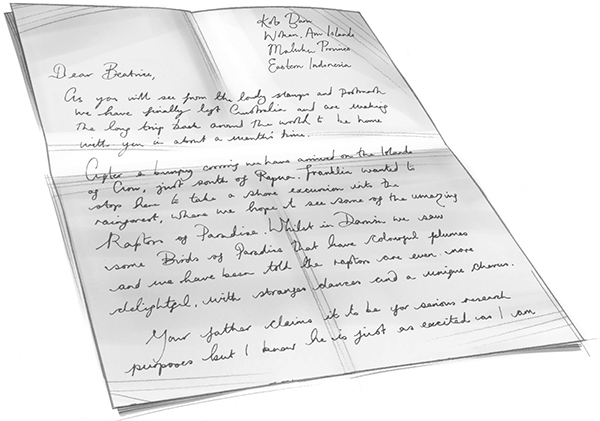 Kob Bam
Woham, Aru Islands
Maluku Province
Eastern Indonesia
Dear Beatrice,
As you will see from the lady stamps and postmark
we have finally left Australia and are making
the long trip back around the world to be home
with you in about a month's time.
After a bumpy crossing we have arrived on the Islands
of Crow, just south of Papua. Franklin wanted to
stop here to take a short excursion into the
rainforest, where we hope to see some of the amazing
Raptors of Paradise. Whilst in Darwin we saw
some Birds of Paradise that have colorful plumes
and we have been told the raptors are even more
delightful, with stranger dances and a unique chorus.
Your father claims it to be for serious research
purposes but I know he is just as excited as I am